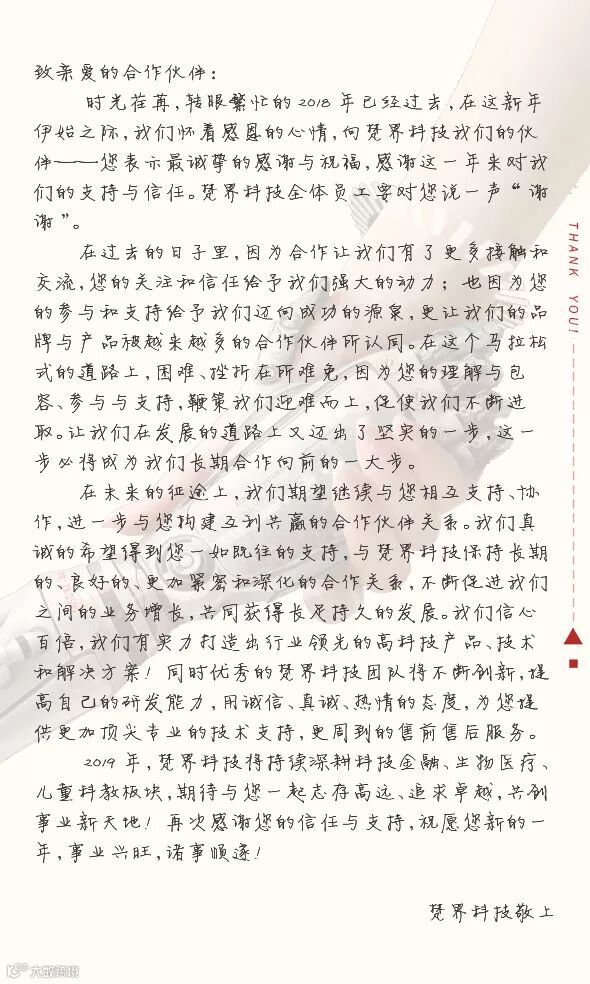 致亲爱的合作伙伴：
时光荏苒，转眼繁忙的2018年已经过去，在这新年
伊始之际，我们怀着感恩的心情，向梵界科技我们的伙
伴——您表示最诚挚的感谢与祝福，感谢这一年来对我
们的支持与信任。梵界科技全体员工要对您说一声“谢
谢”。
在过去的日子里，因为合作让我们有了更多接触和
交流，您的关注和信任给予我们强大的动力；也因为您
的参与和支持给予我们迈向成功的源泉，更让我们的品
牌与产品被越来越多的合作伙伴所认同。在这个马拉松
式的道路上，困难、挫折在所难免，因为您的理解与包
容、参与与支持，鞭策我们迎难而上，促使我们不断进
取。让我们在发展的道路上又迈出了坚实的一步，这一
步必将成为我们长期合作向前的一大步。
在未来的征途上，我们期望继续与您相互支持、协
作，进一步与您构建互利共赢的合作伙伴关系。我们真
诚的希望得到您一如既往的支持，与梵界科技保持长期
的、良好的、更加紧密和深化的合作关系，不断促进我们
之间的业务增长，共同获得长足持久的发展。我们信心
百倍，我们有实力打造出行业领先的高科技产品、技术
和解决方案！同时优秀的梵界科技团队将不断创新，提
高自己的研发能力，用诚信、真诚、热情的态度，为您提
供更加顶尖专业的技术支持，更周到的售前售后服务。
2019年，梵界科技将持续深耕科技金融、生物医疗、
儿童科教板块，期待与您一起志存高远、追求卓越，共创
事业新天地！再次感谢您的信任与支持，祝愿您新的一
年，事业兴旺，诸事顺遂！
梵界科技敬上
THANK YOU!
大数跨境